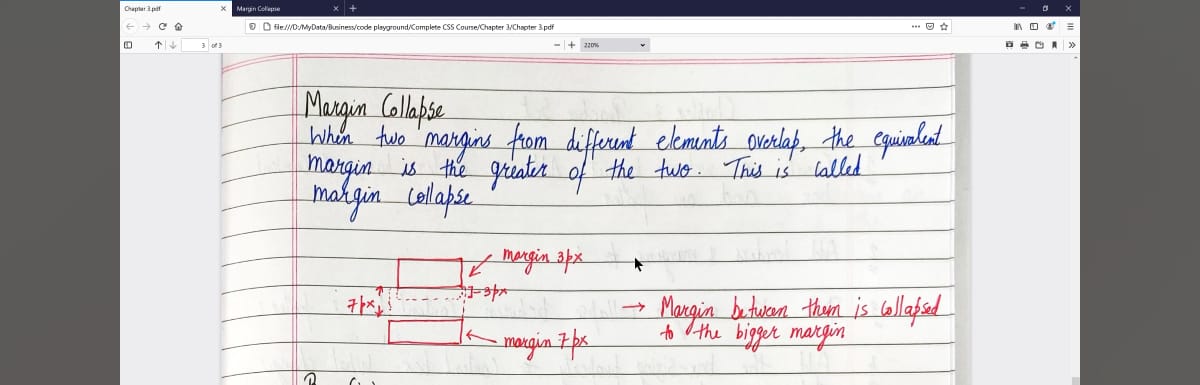 Chapter 3.pdf
Margin Collapse
file:///D:/MyData/Business/code playground/Complete CSS Course/Chapter 3/Chapter 3.pdf
3 of 3
220%
Margin Collapse
When two margins from different elements overlap, the equivalent
margin is the greater of the two. This is called
margin collapse
margin 3px
3px
7px
→ Margin between them is collapsed
to the bigger margin
margin 7px